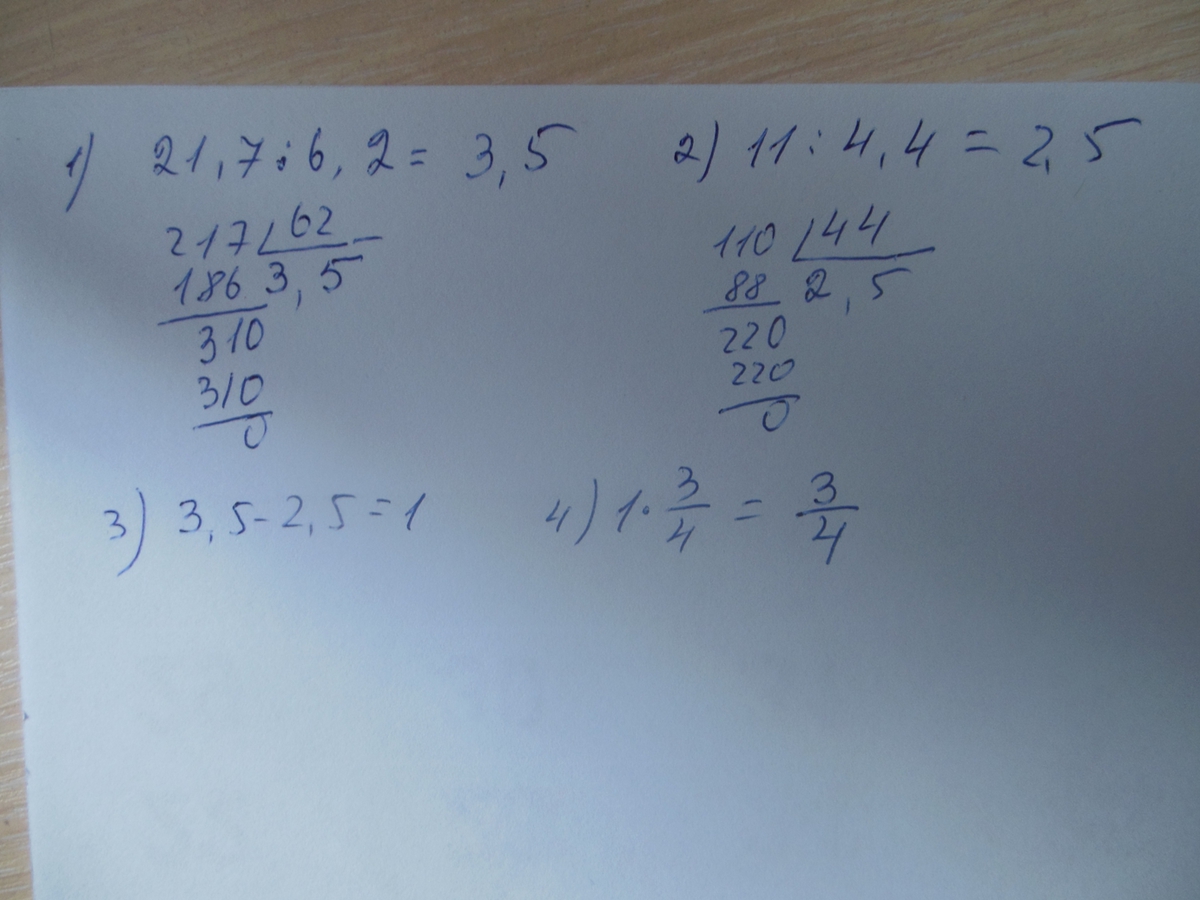 1) 21,7:6,2= 3,5
217 62
186 3,5
310
310
0
2) 11:4,4=2,5
110 44
88 2,5
220
220
0
3) 3,5-2,5=1
4) 1·3/4 = 3/4